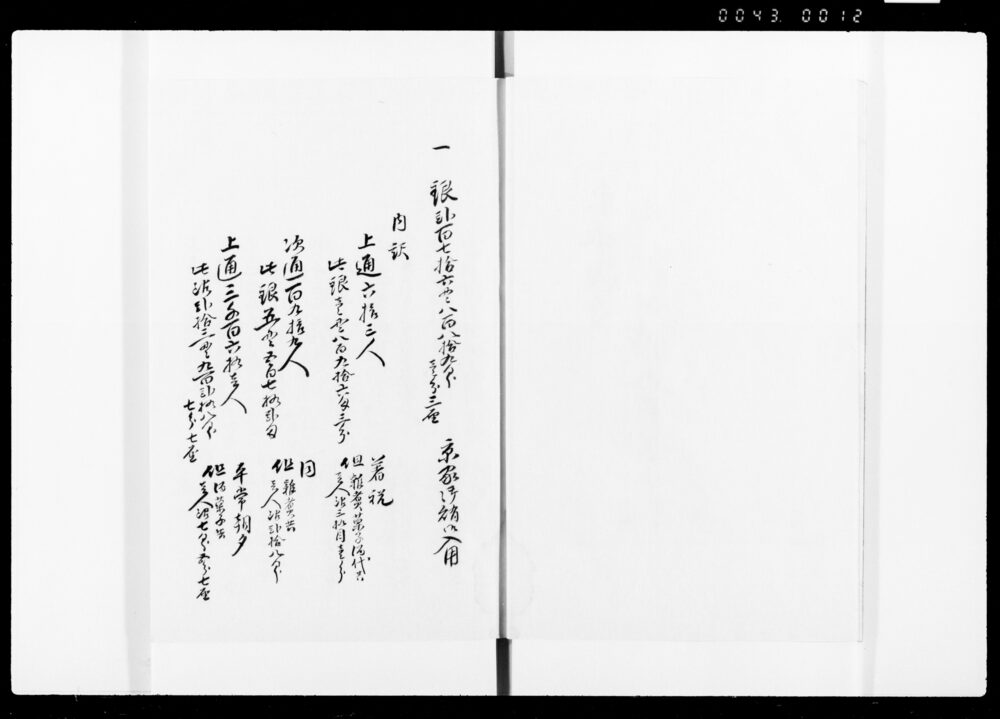 0043. 0012
一 銀弐百七拾六貫八百八拾九匁
壱分三厘
京家御賄御入用
内訳
上通六拾三人
此銀壱貫八百九拾六匁三分
着祝
但雑煮菓子酒代共
壱人ニ付三拾目壱分
次通百九拾九人
此銀五貫五百七拾弐匁
同
但雑煮共
壱人ニ付弐拾八匁
上通三千百六拾壱人
此銀弐拾三貫九百弐拾八匁
七分七厘
平常朝夕
但酒菓子共
壱人ニ付七匁五分七厘